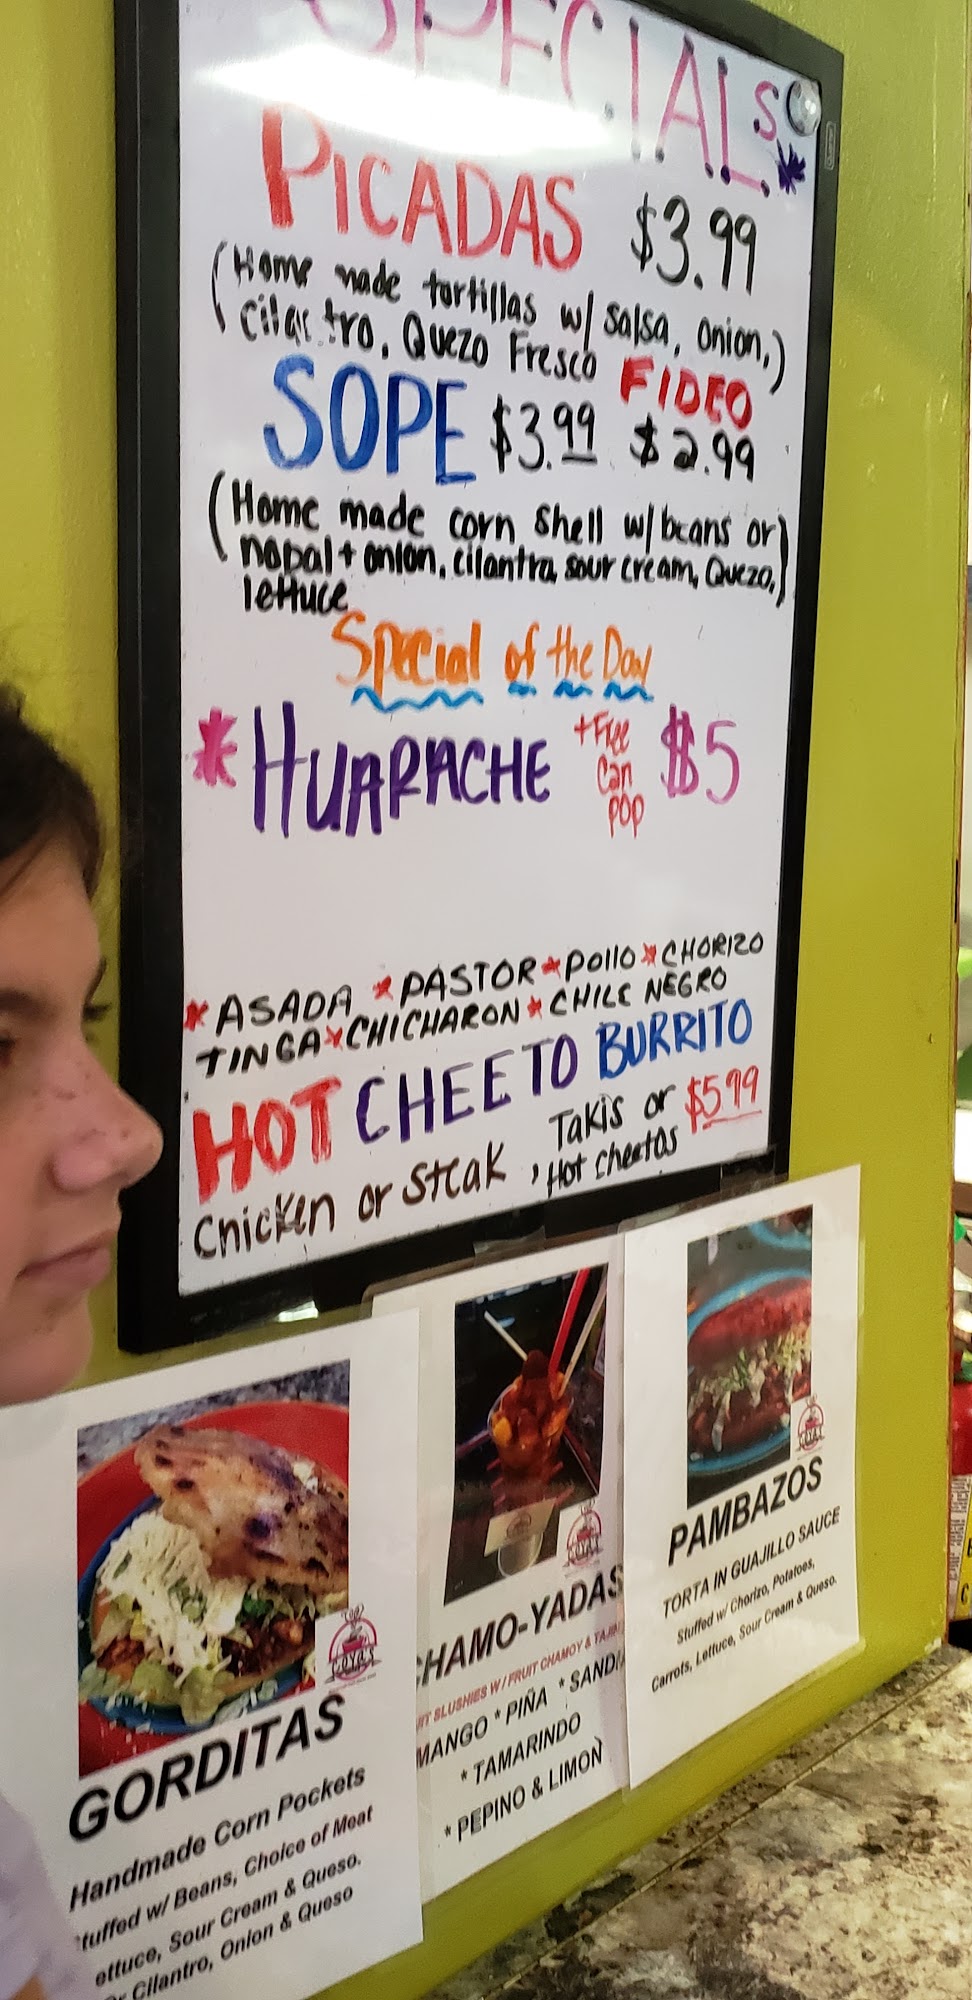 SPECIALS
PICADAS $3.99
(Home made tortillas w/ salsa, onion,)
cilantro, Quezo Fresco
SOPE $3.99
FIDEO
$2.99
(Home made corn shell w/beans or)
nopal + onion, cilantra, sour cream, Quezo,
lettuce
Special of the Day
*HUARACHE
+Free
can
pop
$5
*ASADA *PASTOR*POllO*CHORIZO
TINGA*CHICHARON*CHILE NEGRO
HOT CHEETO BURRITO
Chicken or Steak, Takis or
Hot cheetos
$5.99
GORDITAS
Handmade Corn Pockets
tuffed w/ Beans, Choice of Meat
ettuce, Sour Cream & Queso.
Or Cilantro, Onion & Queso
GOYO'S
HAMO-YADAS
IT SLUSHIES W/ FRUIT CHAMOY & TAJIN
MANGO * PIÑA * SANDI
* TAMARINDO
* PEPINO & LIMON
PAMBAZOS
TORTA IN GUAJILLO SAUCE
Stuffed w/ Chorizo, Potatoes,
Carrots, Lettuce, Sour Cream & Queso.